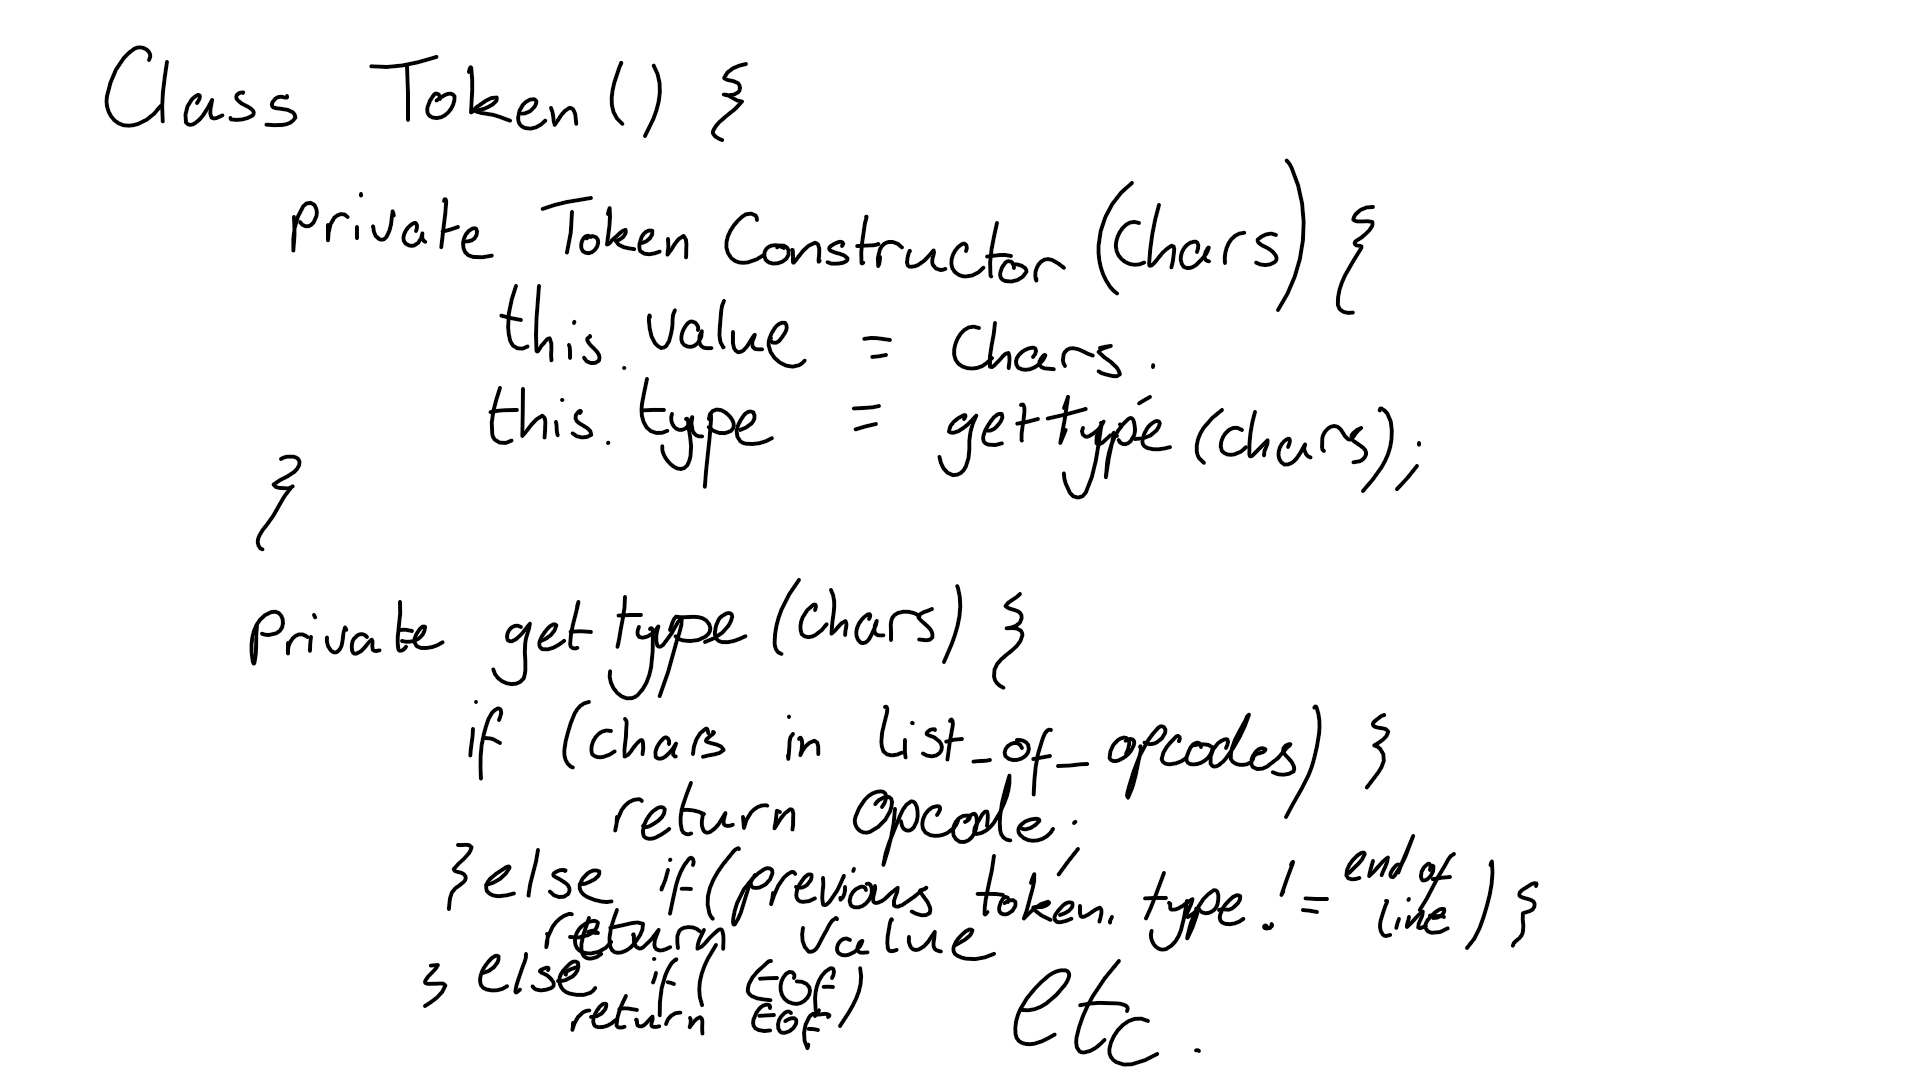 Class Token() {
private Token Constructor (Chars) {
this.value = Chars.
this.type = gettype(chars);
}
private gettype (Chars) {
if (chars in list_of_opcodes) }
return Opcode;
} else if (previous token.type != end of line) {
return value
} else if ( EOF)
return EOF
etc.